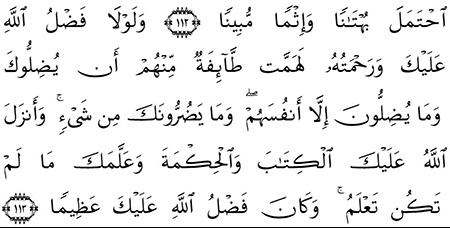 ٱحْتَمَلَ بُهْتَٰنًا وَإِثْمًا مُّبِينًا ﴿١١٣﴾ وَلَوْلَا فَضْلُ ٱللَّهِ
عَلَيْكَ وَرَحْمَتُهُۥ لَهَمَّت طَّآئِفَةٌ مِّنْهُمْ أَن يُضِلُّوكَ
وَمَا يُضِلُّونَ إِلَّآ أَنفُسَهُمْ ۖ وَمَا يَضُرُّونَكَ مِن شَىْءٍ ۚ وَأَنزَلَ
ٱللَّهُ عَلَيْكَ ٱلْكِتَٰبَ وَٱلْحِكْمَةَ وَعَلَّمَكَ مَا لَمْ
تَكُن تَعْلَمُ ۚ وَكَانَ فَضْلُ ٱللَّهِ عَلَيْكَ عَظِيمًا ﴿١١٣﴾